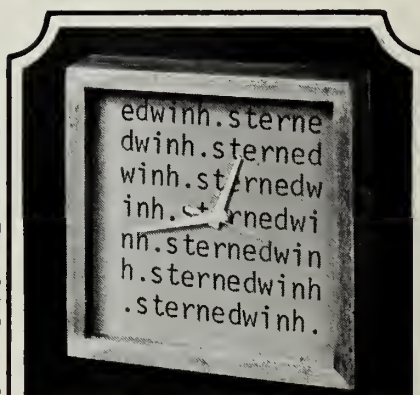 edwinh.sterne
dwinh.sterned
winh.sternedw
inh.sternedwi
nh.sternedwin
h.sternedwinh
.sternedwinh.